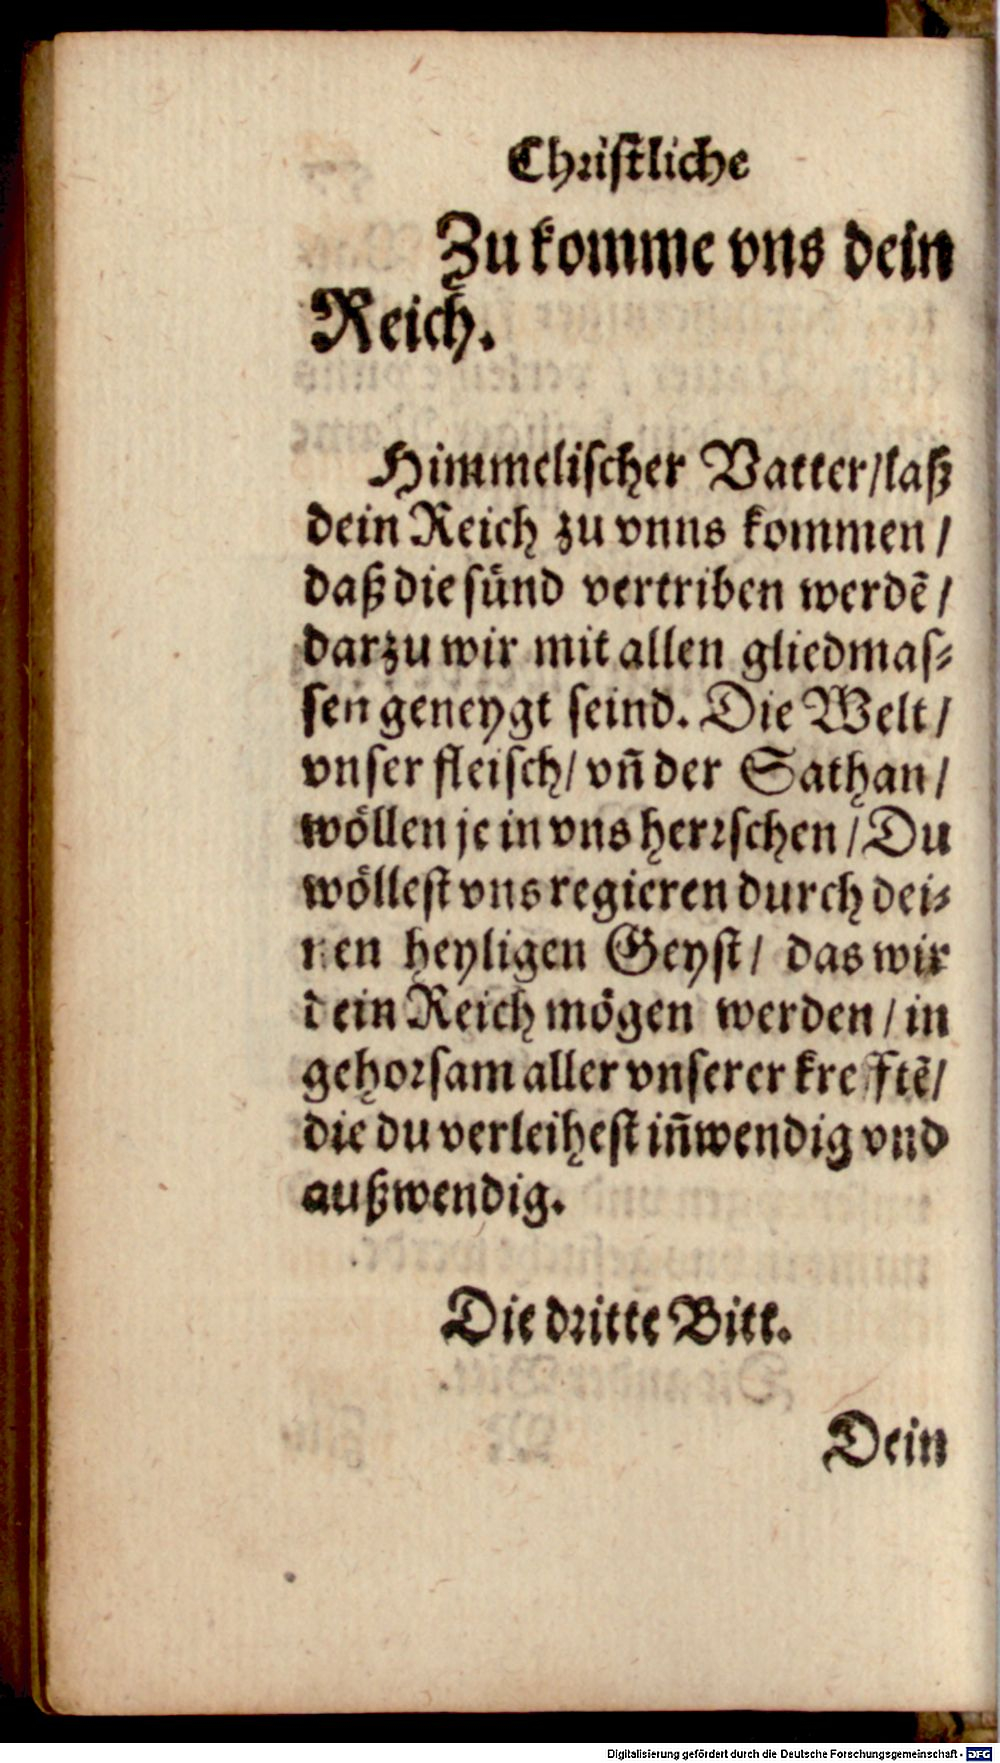 Christliche
Zu komme vns dein
Reich.
Himmelischer Vatter/laß
dein Reich zu vnns kommen/
daß die sünd vertriben werdē/
darzu wir mit allen gliedmas-
sen geneygt seind. Die Welt/
vnser fleisch/ vn̄ der Sathan/
wöllen je in vns herrschen/Du
wöllest vns regieren durch dei-
nen heyligen Geyst/ das wir
dein Reich mögen werden/in
gehorsam aller vnserer krefftē/
die du verleihest in̄wendig vnd
außwendig.
Die dritte Bitt.
Dein
Digitalisierung gefördert durch die Deutsche Forschungsgemeinschaft - DFG